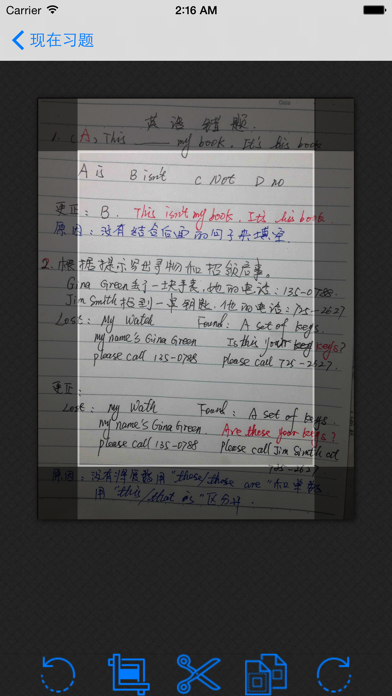 Carrier 2:16 AM
现在习题
英语错题.
1. (A) This ___ my book. It's his book
A is B isn't C Not D no
更正: B. This isn't my book. It's his book
原因: 没有结合后面的句子来填空.
2. 根据提示写出寻物和招领启事。
Gina Green丢了一块手表, 她的电话: 135-0788.
Jim Smith拾到一串钥匙. 他的电话: 725-2627.
Lost: My Watch Found: A set of keys.
my name's Gina Green Is this your keys?
please call 135-0788 Please call 725-2627.
更正:
Lost: My Wath Found: A set of keys.
my name's Gina Green Are these your keys?
please call 135-0788 Please call Jim Smith at
725-2627
原因: 没有弄懂 用 "these/those are" 和单数
用 "this/that is" 区分开.